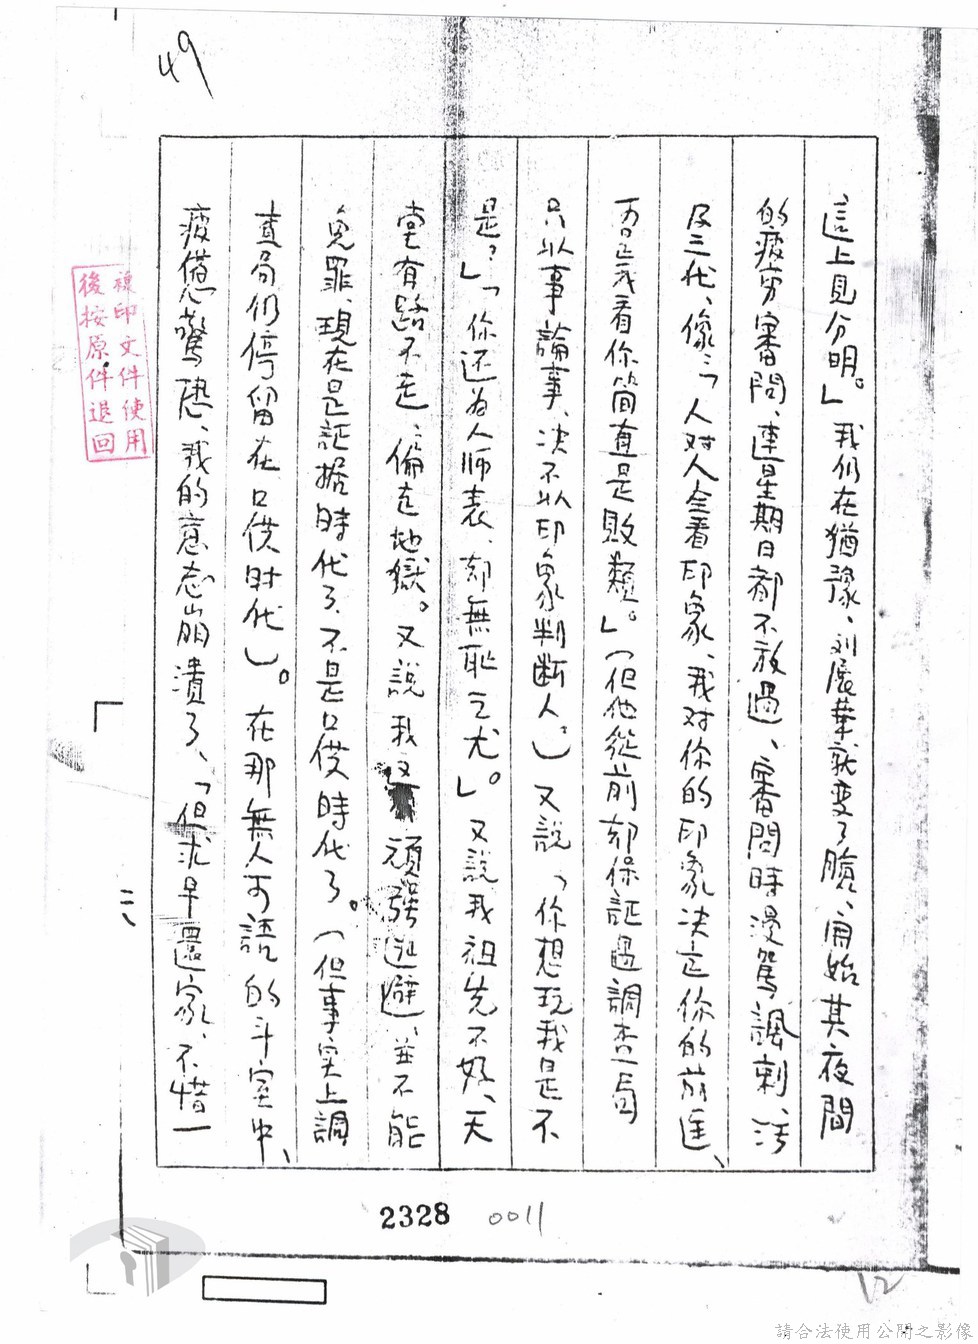 49
這上見分明。」我仍在猶豫、刘展華就变了臉、開始其夜間
的疲労審問、連星期日都不放過、審問時漫駡諷刺、污
及三代、像:「人对人全看印象、我对你的印象决定你的前途、
而且我看你簡直是敗類。」(但他從前却保証過調查局
只以事論事、决不以印象判断人。)又説「你想玩我是不
是?」「你还为人師表、却無恥之尤。」又説我祖先不好、天
堂有路不走、偏走地獄。又說我頑强逃避、並不能
免罪、現在是証据時代了、不是口供時代了。(但事实上調
查局仍停留在口供时代)。在那無人可語的斗室中、
疲憊驚恐、我的意志崩潰了、「但求早還家、不惜一
複印文件使用
後按原件退回
二、
2328 0011
12
請合法使用公開之影像